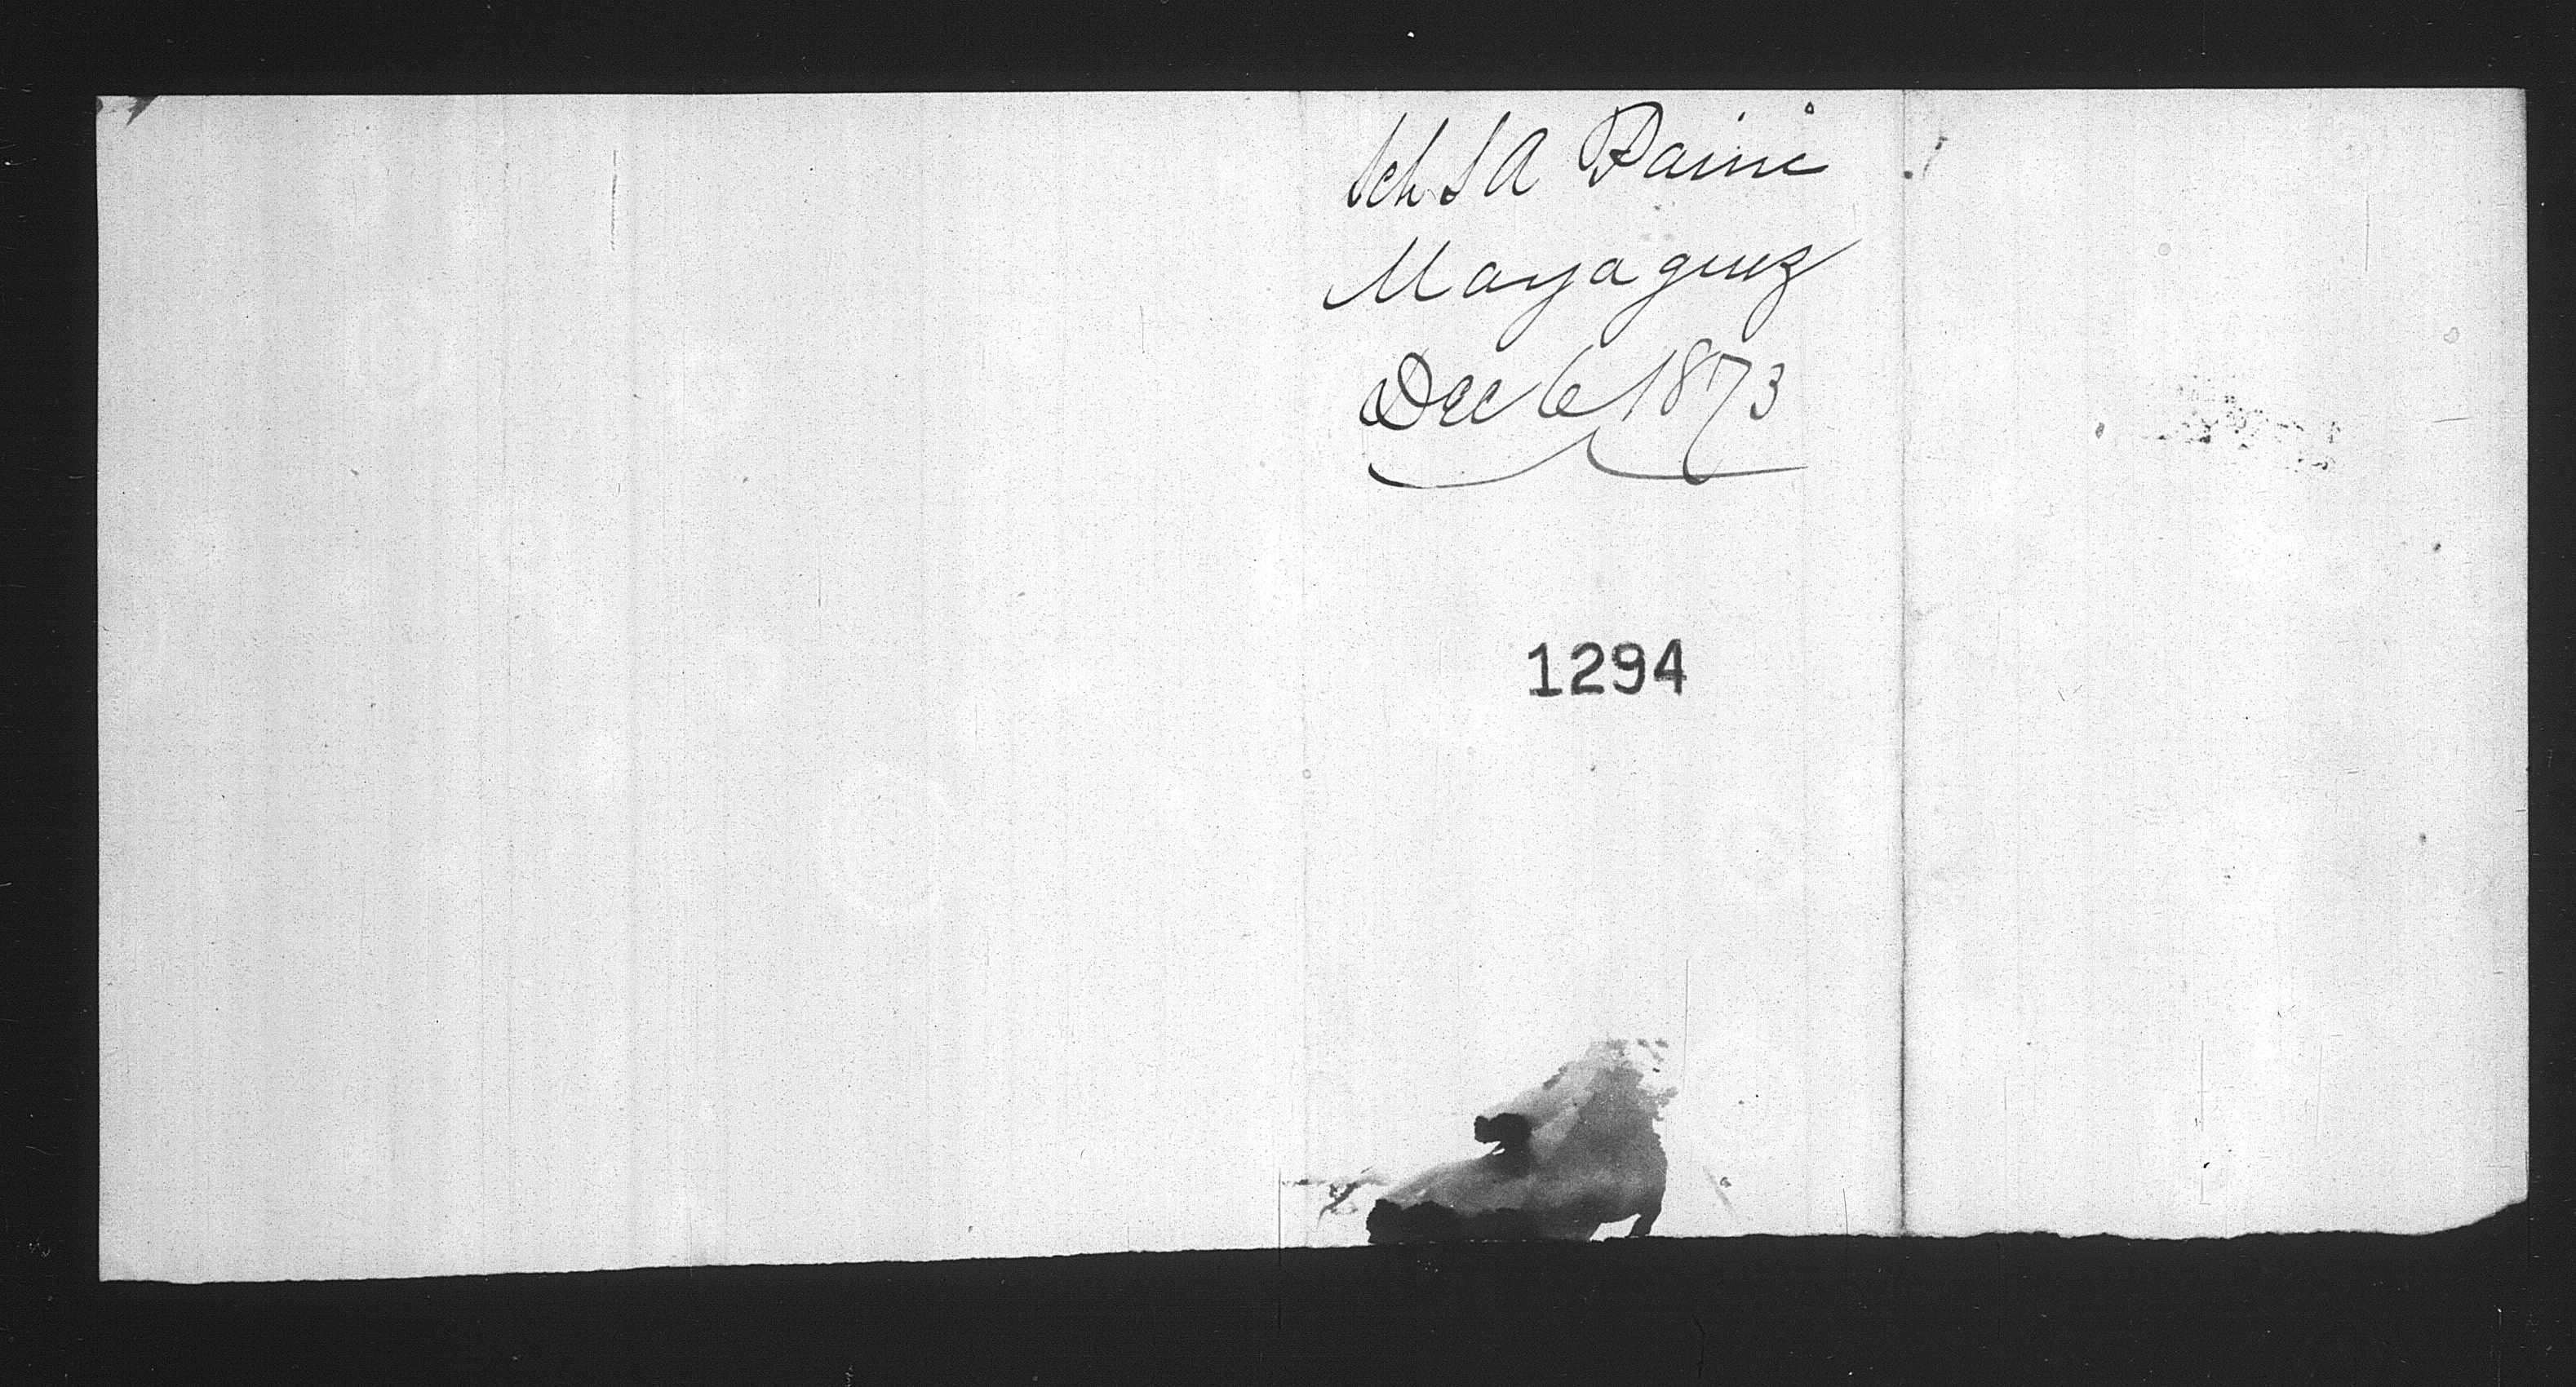 Sch S A Paine
Mayaguez
Dec 6 1873
1294